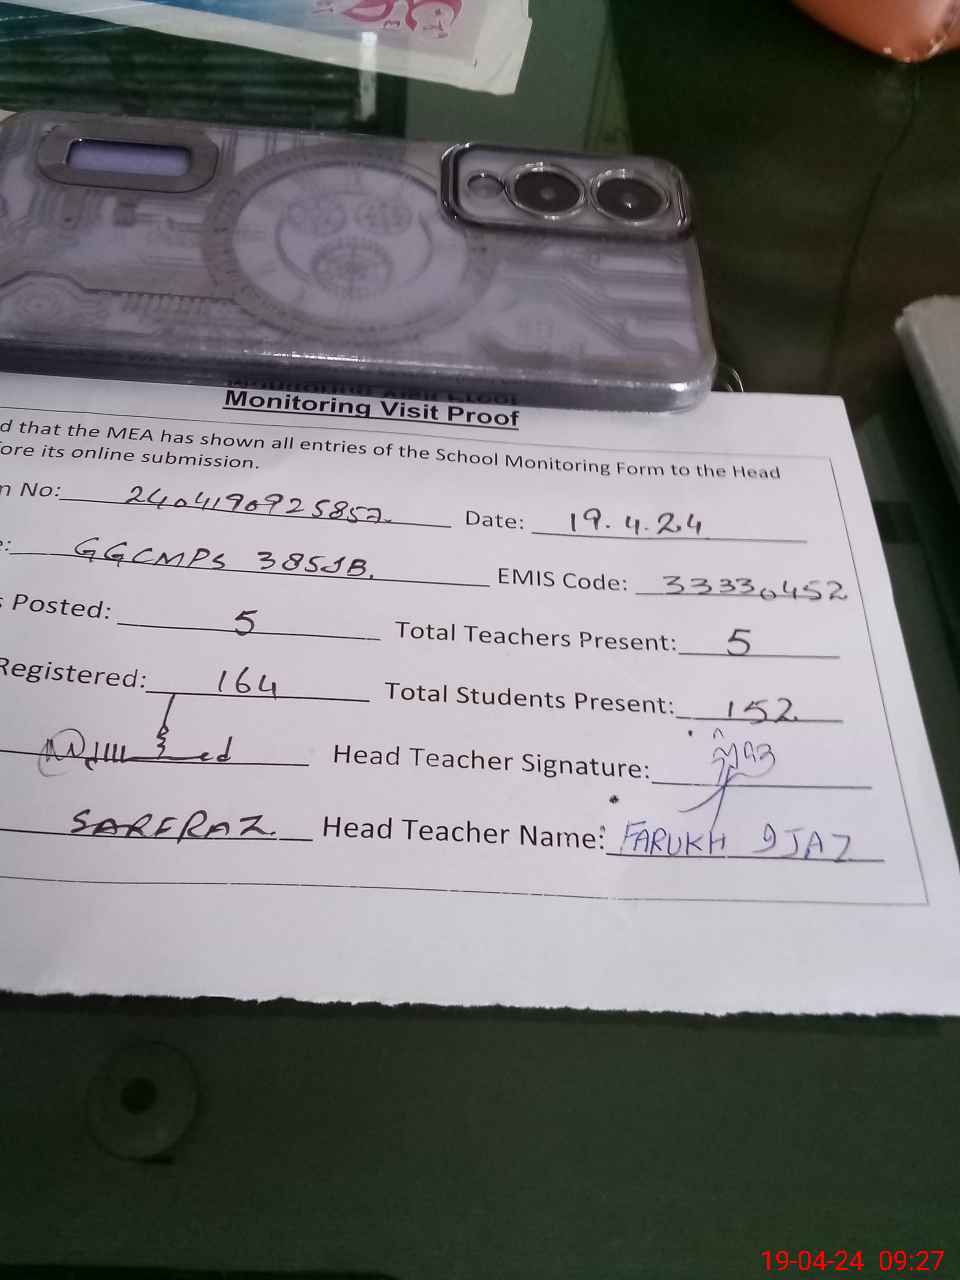 Monitoring Visit Proof
d that the MEA has shown all entries of the School Monitoring Form to the Head
ore its online submission.
n No: 2404190925857 Date: 19.4.24
e: GGCMPS 385JB. EMIS Code: 33330452
s Posted: 5 Total Teachers Present: 5
Registered: 164 Total Students Present: 152
Head Teacher Signature:
SARFRAZ Head Teacher Name: FARUKH IJAZ
19-04-24 09:27